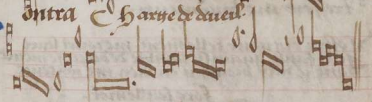 ontra Charge de deueil